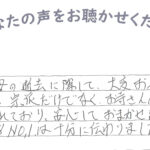 なたの声をお聴かせくだ
母の逝去に際して、大変お
、家族だけでなく、お寺さん
れており、安心しておまかせ
NO.1は十分に伝わりまし